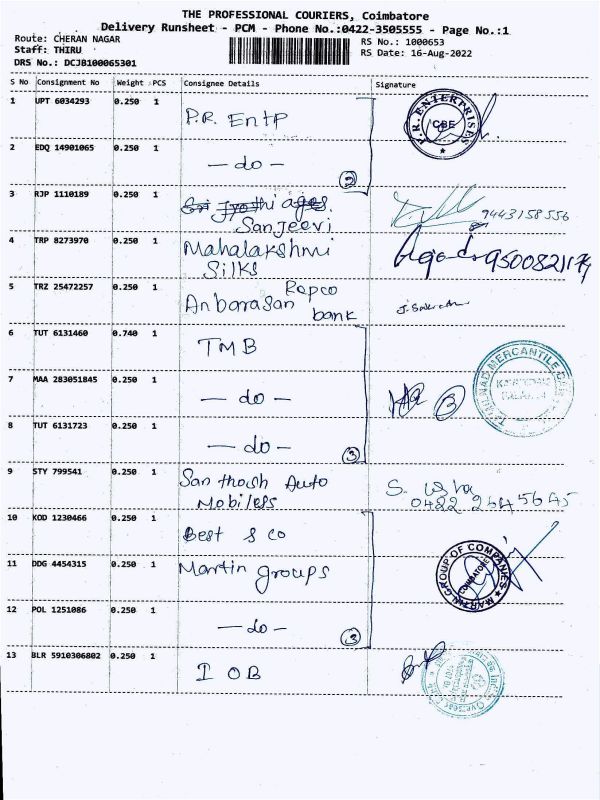 THE PROFESSIONAL COURIERS, Coimbatore
Delivery Runsheet - PCM - Phone No.:0422-3505555 - Page No.:1
Route: CHERAN NAGAR
RS No.: 1000653
Staff: THIRU
RS Date: 16-Aug-2022
DRS No.: DCJB100065301
S No Consignment No Weight PCS Consignee Details Signature
1 UPT 6034293 0.250 1 P.R. Entp P.R. ENTERPRISES CBE
2 EDQ 14901065 0.250 1 - do - 2
3 RJP 1110189 0.250 1 Sri Jyothi ages. Sanjeevi 9443158556
4 TRP 8273970 0.250 1 Mahalakshmi Silks 9500821174
5 TRZ 25472257 0.250 1 Anbarasan Repco bank
6 TUT 6131460 0.740 1 TMB
7 MAA 283051845 0.250 1 - do - 3
TAMILNAD MERCANTILE BANK
8 TUT 6131723 0.250 1 - do - 3
9 STY 799541 0.250 1 Santhosh Auto Mobiless S. Usha 0422 2645645
10 KOD 1230466 0.250 1 Best & co
11 DDG 4454315 0.250 1 Martin groups MARTIN GROUP OF COMPANIES COIMBATORE
12 POL 1251086 0.250 1 - do - 3
13 BLR 5910306802 0.250 1 I O B